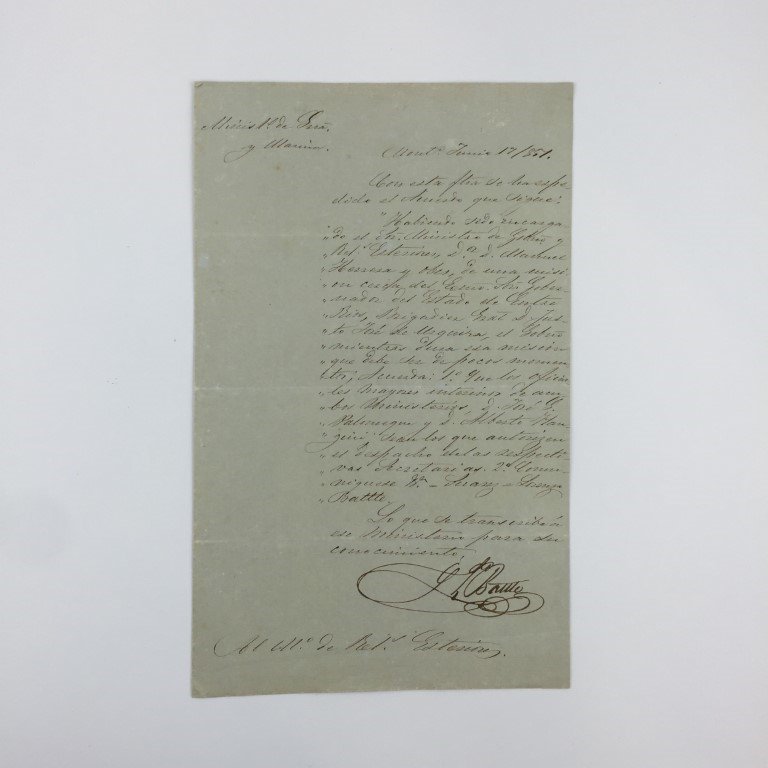 Minist.º de Grra.
y Marina.
Mont.º Junio 17/851.
Con esta fha se ha espe-
dido el Acuerdo que sigue:
"Habiendo sido encarga-
"do el Sr. Ministro de Gobno y
"Rel.s Esteriores, D.r D. Manuel
"Herrera y Obes, de una misi-
"on cerca del Exmo. Sr. Gober-
"nador del Estado de Entre
"Rios, Brigadier Gral D. Jus-
"to José de Urquiza, el Gobno
"mientras dura esa mision
"que debe ser de pocos momen-
"tos, Acuerda: 1.º Que los oficia-
"les mayores interinos de am-
"bos Ministerios, d. José G.
"Palomeque y d. Alberto Flan-
"gini sean los que autorizen
"el despacho de las respecti-
"vas Secretarias. 2.º Comu-
"niquese &.a - Suarez -
"Batlle.
Lo que se transcribe á
ese Ministerio para su
conocimiento.
Batlle
Al M.º de Rel.s Esteriores.